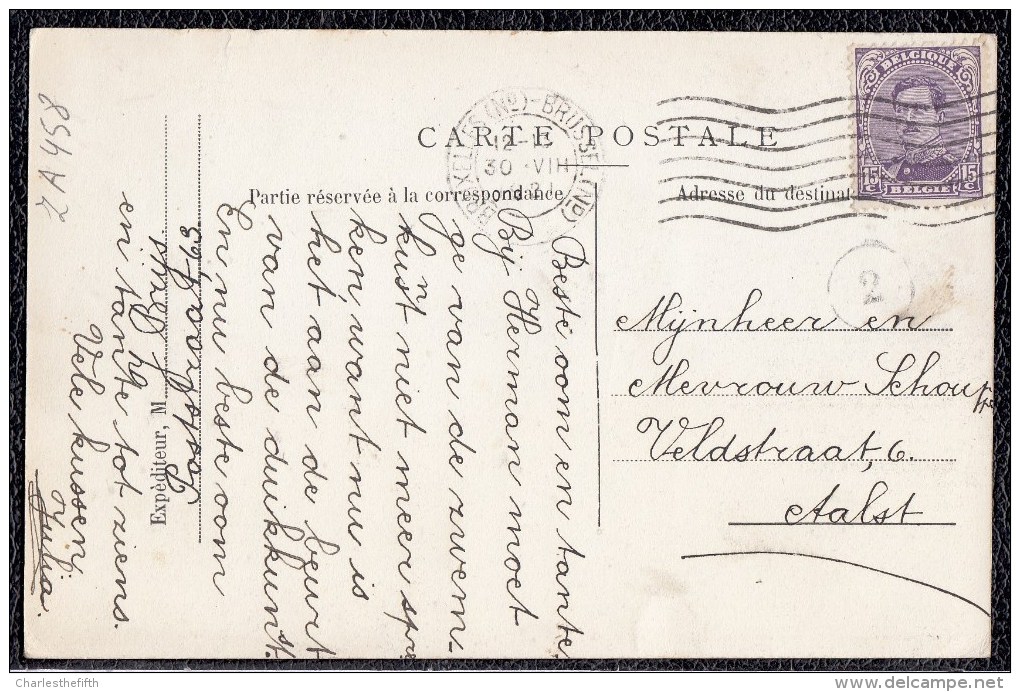 CARTE POSTALE
Partie réservée à la correspondance
Adresse du destinat
BELGIQUE
15 C
15 C
BELGIE
(Nº)-BRUSSEL(ND)
30 VIII
2
Mijnheer en
Mevrouw
Veldstraat, 6.
Aalst
Beste oom en tante,
Bij Herman moet
ge van de zwem-
kunst niet meer spre
ken, want nu is
het aan de beurt
van de duikkunst.
En nu beste oom
en tante tot ziens.
Vele kussen
Julia.
Expéditeur, M
2A458
Charlesthefifth
© www.delcampe.net